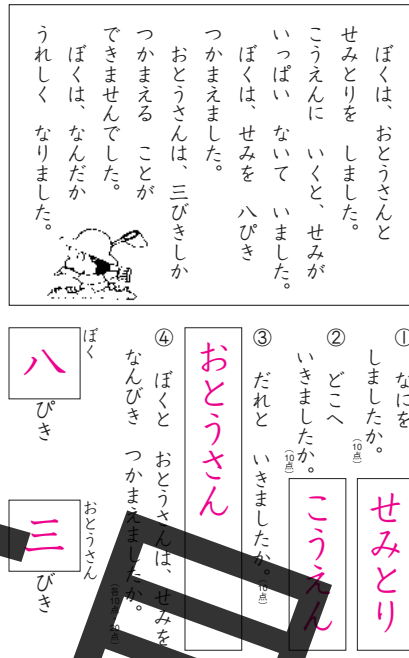 ぼくは、おとうさんと
せみとりを しました。
こうえんに いくと、せみが
いっぱい ないて いました。
ぼくは、せみを 八ぴき
つかまえました。
おとうさんは、三びきしか
つかまえる ことが
できませんでした。
ぼくは、なんだか
うれしく なりました。
① なにを
しましたか。
(10点)
せみとり
② どこへ
いきましたか。
(10点)
こうえん
③ だれと いきましたか。
(10点)
おとうさん
④ ぼくと おとうさんは、せみを
なんびき つかまえましたか。
ぼく
八
ぴき
おとうさん
三
びき